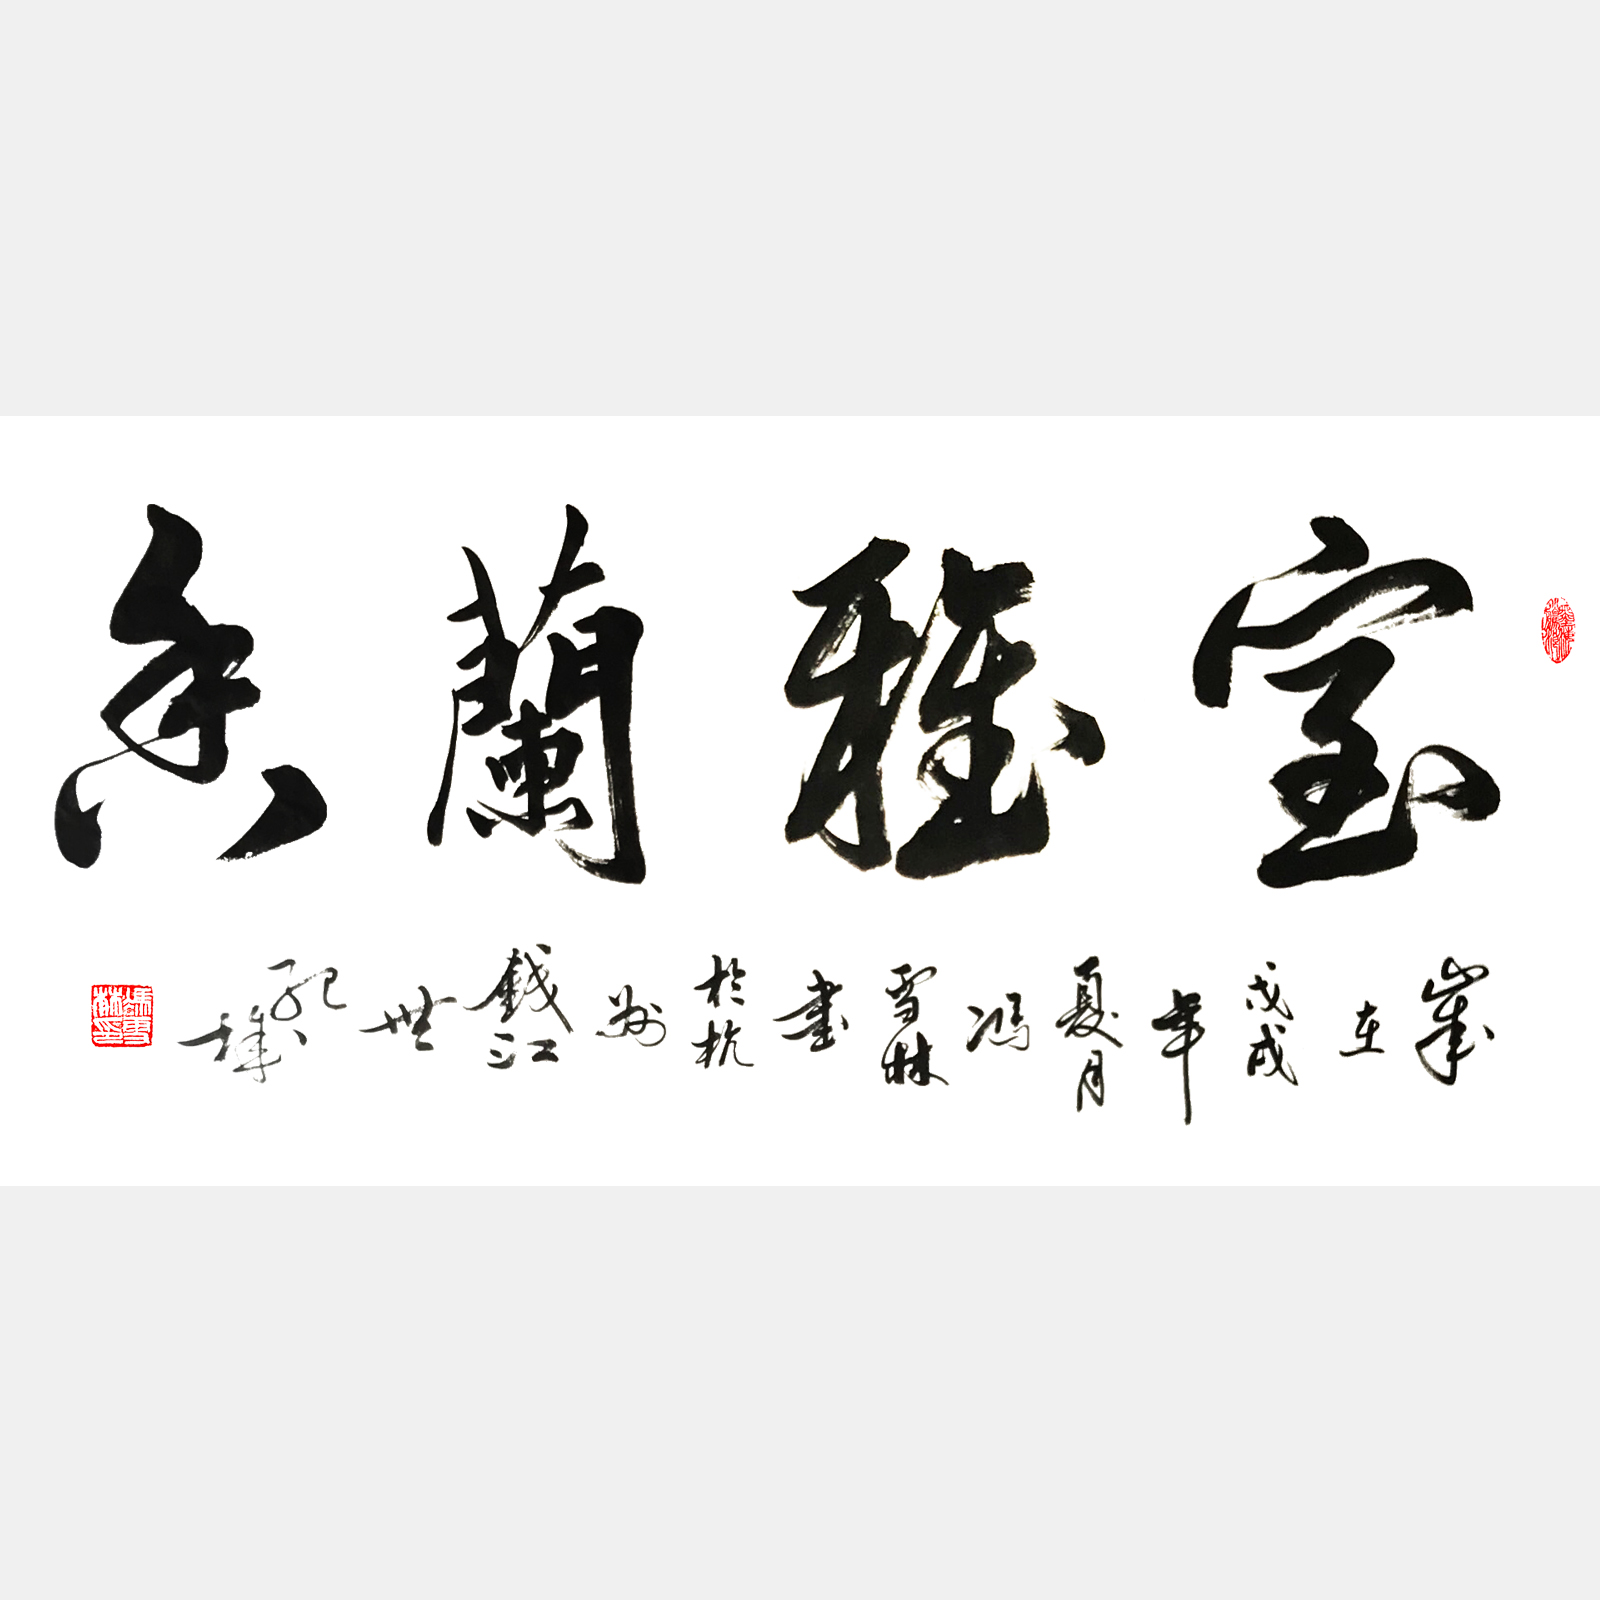 室雅蘭香
歲在戊戌年夏月馮雪林書於杭州錢江世紀城
馮雪林印